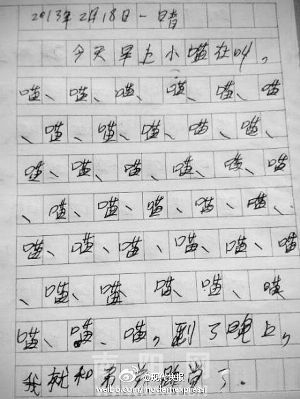 2013年2月18日 一 晴
今天早上小喵在叫。
喵、喵、喵、喵、喵、喵
、喵、喵、喵、喵、喵、
喵、喵、喵、喵、喵、喵
、喵、喵、喵、喵、喵、
喵、喵、喵、喵、喵、喵
、喵、喵、喵、喵、喵
喵、喵、喵，到了晚上，
我就和
了.